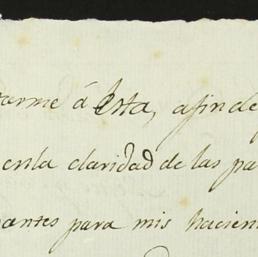 tarme á esta, afin de
en la claridad de las pa
antes para mis hacien